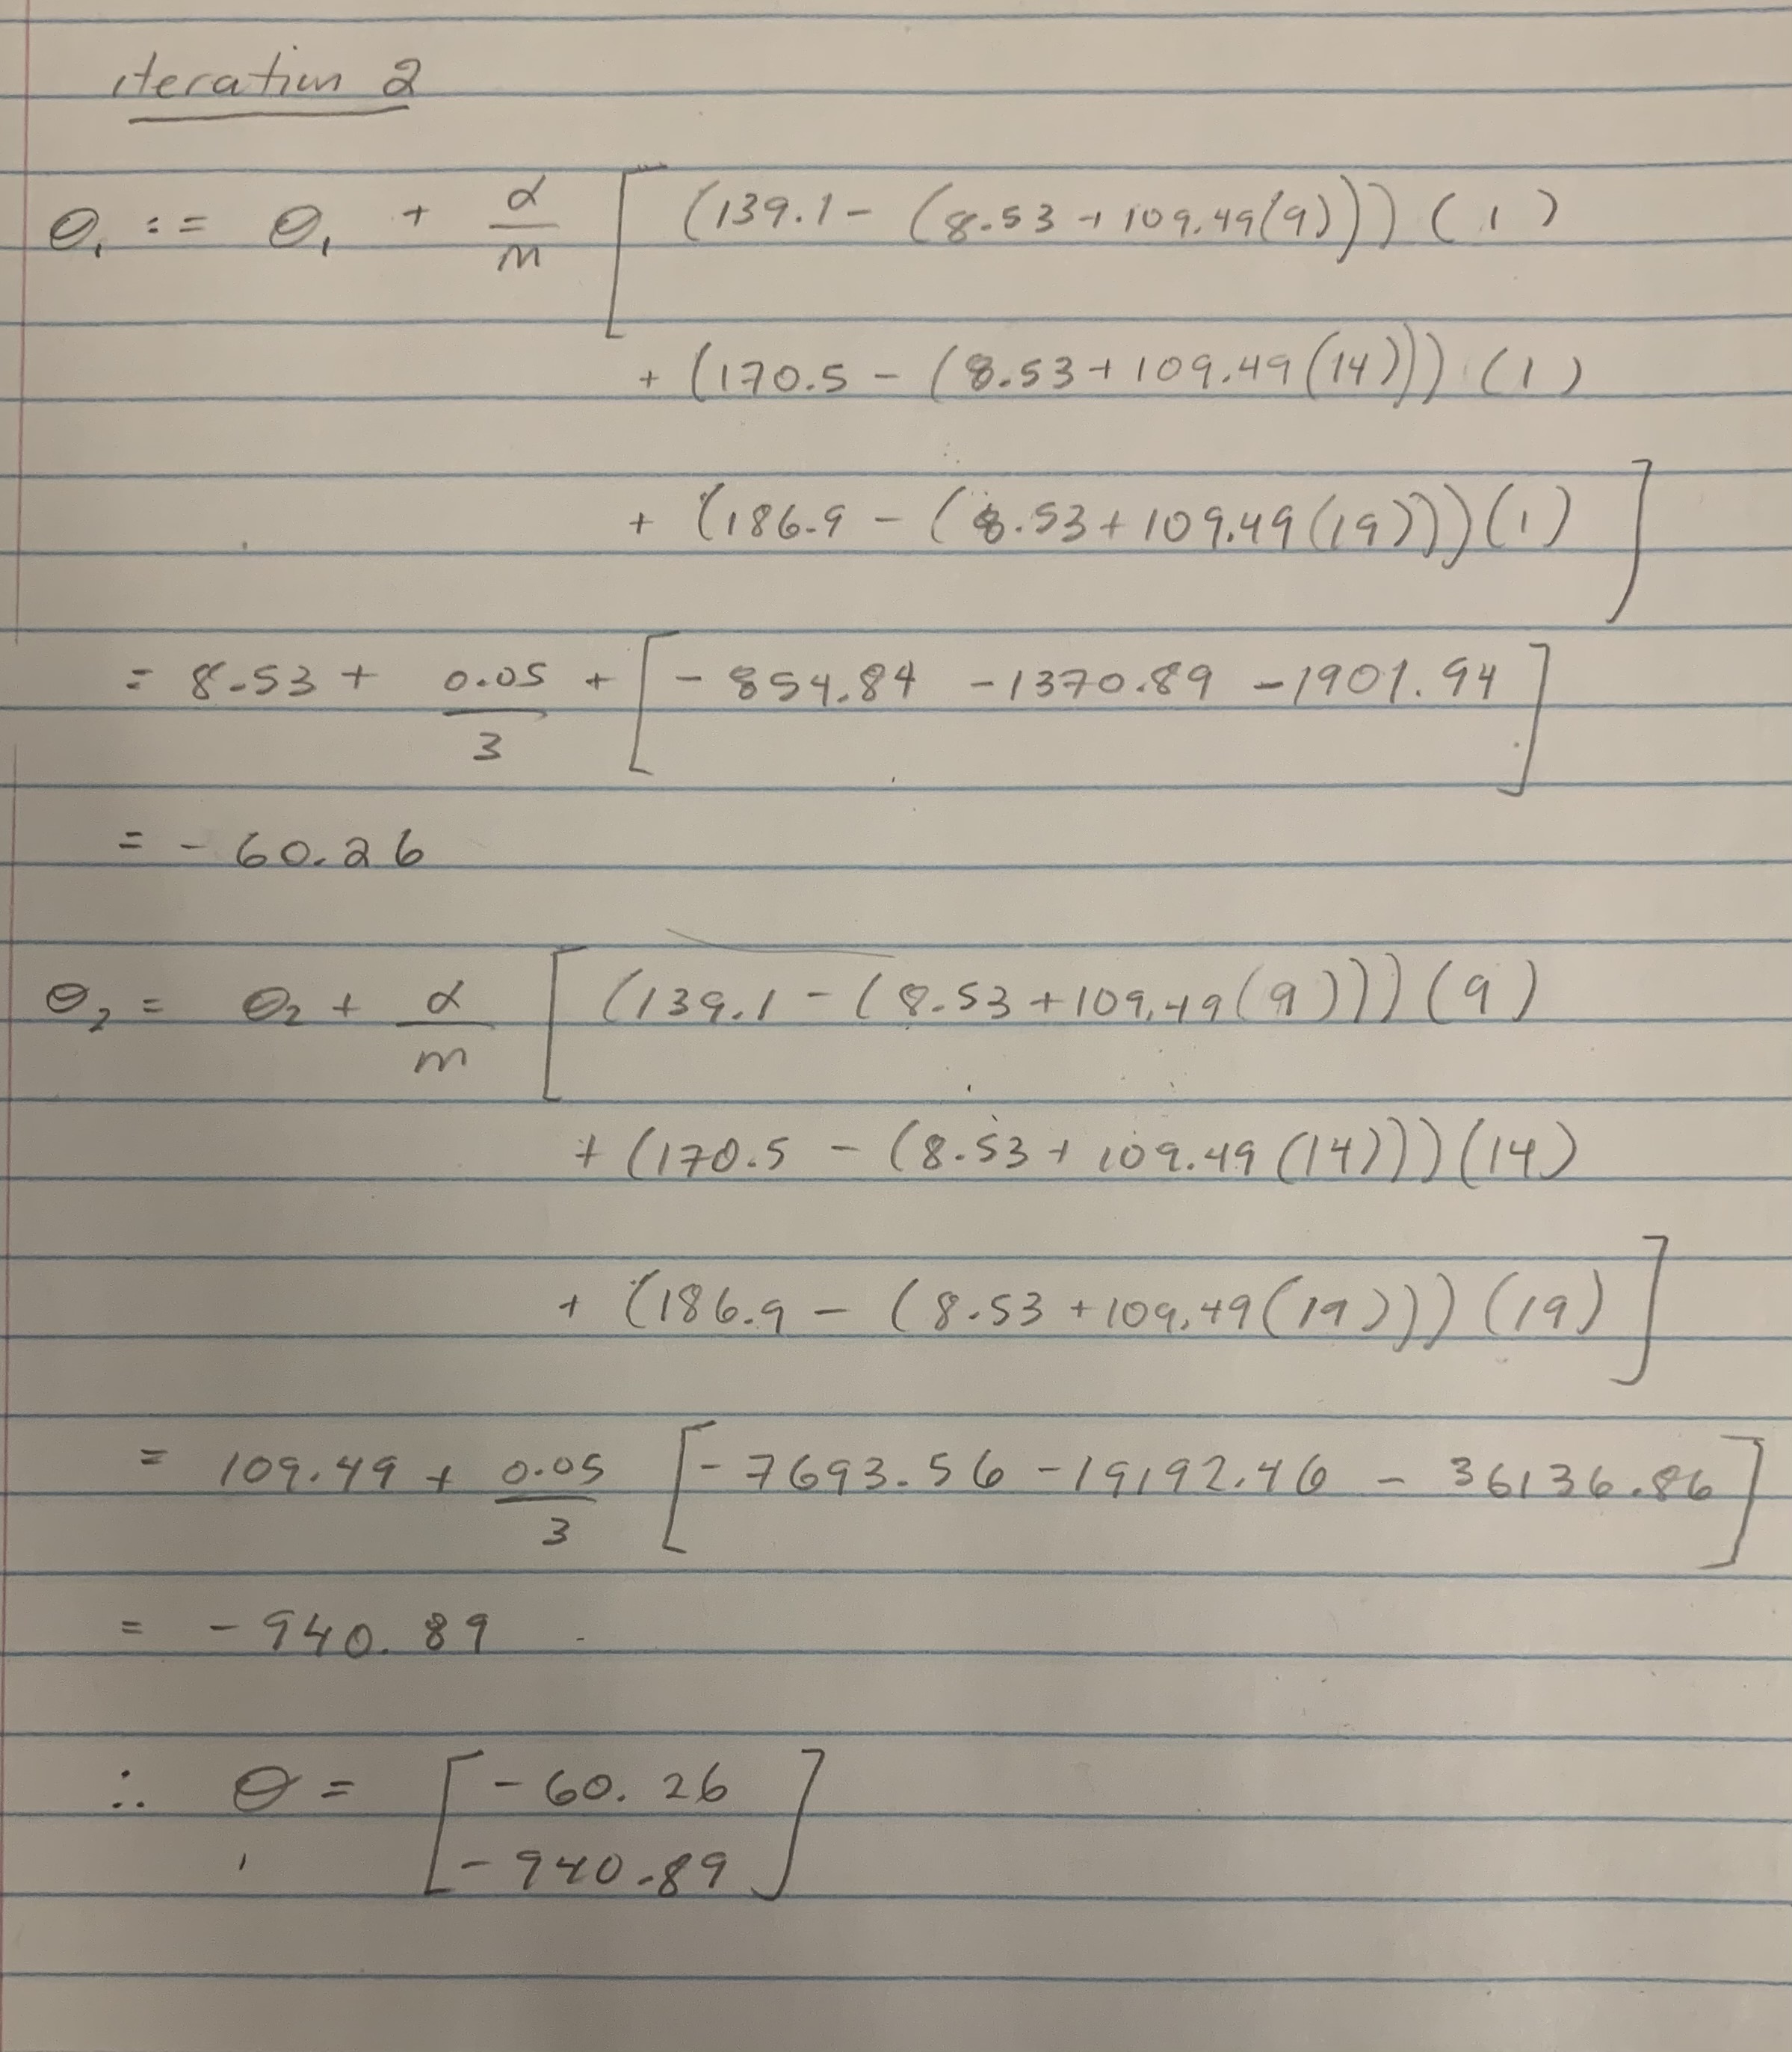 iteration 2
θ₁ := θ₁ + α/m [ (139.1 - (8.53 + 109.49(9))) (1)
+ (170.5 - (8.53 + 109.49(14))) (1)
+ (186.9 - (8.53 + 109.49(19))) (1) ]
= 8.53 + 0.05/3 + [ - 854.84 - 1370.89 - 1901.94 ]
= - 60.26
θ₂ = θ₂ + α/m [ (139.1 - (8.53 + 109.49(9))) (9)
+ (170.5 - (8.53 + 109.49(14))) (14)
+ (186.9 - (8.53 + 109.49(19))) (19) ]
= 109.49 + 0.05/3 [ - 7693.56 - 19192.46 - 36136.86 ]
= - 940.89
∴ θ = [ - 60.26
- 940.89 ]